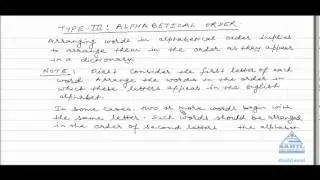 TYPE-III: ALPHABETICAL ORDER
Arranging words in alphabetical order implies
to arrange them in the order as they appear
in a dictionary.
NOTE: First Consider the first letter of each
word. Arrange the words in the order in
which these letters appear in the English
alphabet.
In some cases, two or more words begin with
the same letter. Such words should be arranged
in the order of second letters the alphabet